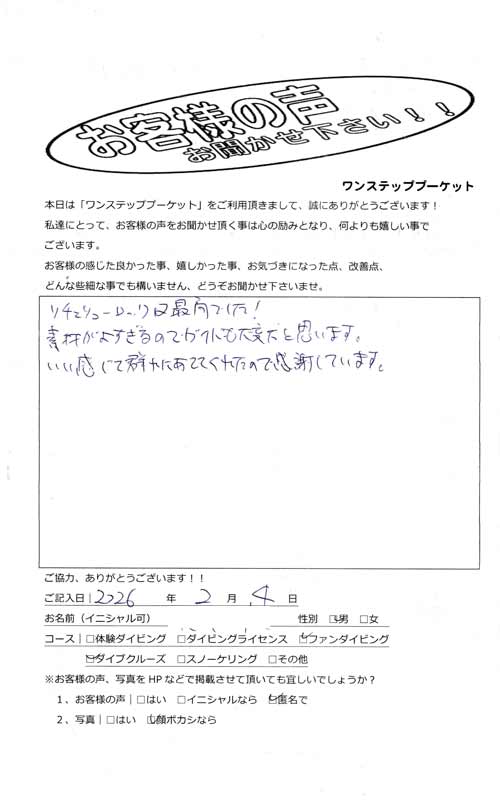 お客様の声
お聞かせ下さい！！
ワンステッププーケット
本日は「ワンステッププーケット」をご利用頂きまして、誠にありがとうございます！
私達にとって、お客様の声をお聞かせ頂く事は心の励みとなり、何よりも嬉しい事で
ございます。
お客様の感じた良かった事、嬉しかった事、お気づきになった点、改善点、
どんな些細な事でも構いません、どうぞお聞かせ下さいませ。
リチェリューロック最高でした！
素材がよすぎるのでガイドも大変だと思います。
いい感じで群れにあててくれたので感謝しています。
ご協力、ありがとうございます！！
ご記入日｜2026 年 2 月 4 日
お名前（イニシャル可） 性別 □男 □女
コース｜□体験ダイビング □ダイビングライセンス □ファンダイビング
□ダイブクルーズ □スノーケリング □その他
※お客様の声、写真を HP などで掲載させて頂いても宜しいでしょうか？
１、お客様の声｜□はい □イニシャルなら □匿名で
２、写真｜□はい □顔ボカシなら